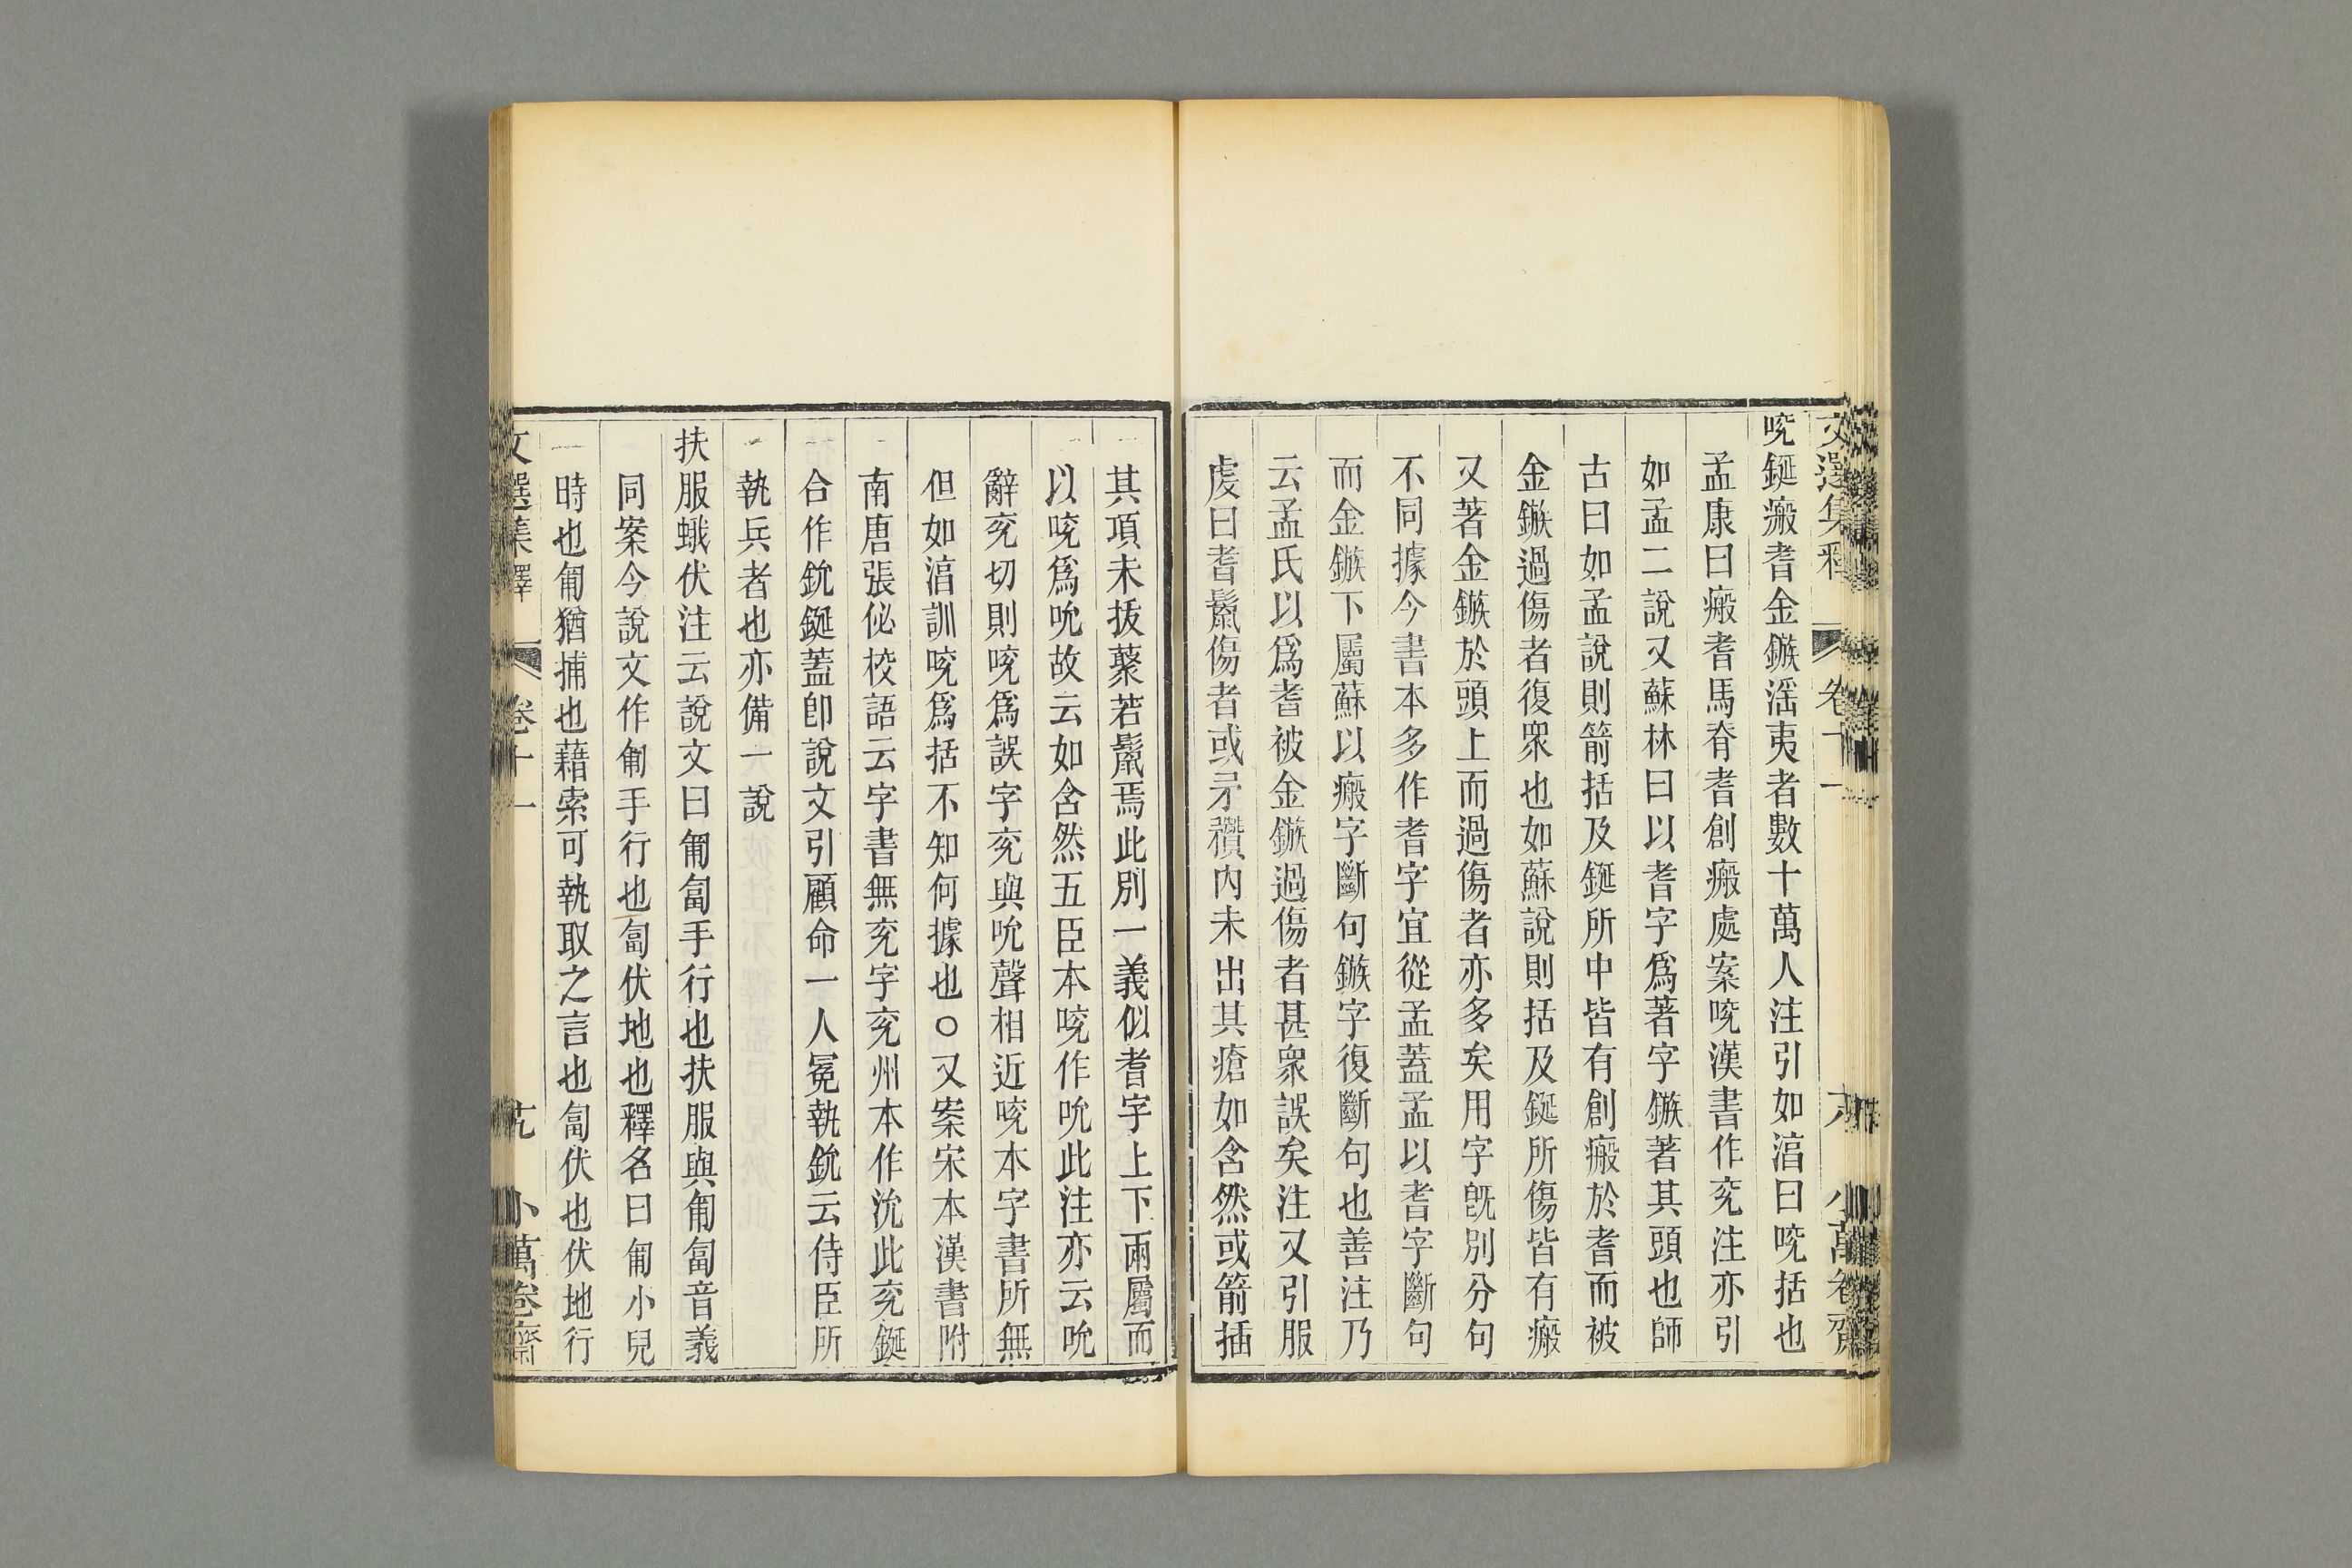 㕙鋋瘢耆金鏃淫夷者數十萬人注引如湻曰㕙括也
孟康曰瘢耆馬脊耆創瘢處案㕙漢書作兖注亦引
如孟二說又蘇林曰以耆字爲著字鏃著其頭也師
古曰如孟說則箭括及鋋所中皆有創瘢於耆而被
金鏃過傷者復衆也如蘇說則括及鋋所傷皆有瘢
又著金鏃於頭上而過傷者亦多矣用字旣別分句
不同據今書本多作耆字宜從孟蓋孟以耆字斷句
而金鏃下屬蘇以瘢字斷句鏃字復斷句也善注乃
云孟氏以爲耆被金鏃過傷者甚衆誤矣注又引服
虔曰耆鬛傷者或矛穳内未出其瘡如含然或箭插
其項未拔蘂若鬛焉此別一義似耆字上下兩屬而
以㕙爲吮故云如含然五臣本㕙作吮此注亦云吮
辭兖切則㕙爲誤字兖與吮聲相近㕙本字書所無
但如湻訓㕙爲括不知何據也○又案宋本漢書附
南唐張佖校語云字書無兖字兖州本作沇此兖鋋
合作鈗鋋蓋卽說文引顧命一人冕執鈗云侍臣所
執兵者也亦備一說
扶服蛾伏注云說文曰匍匐手行也扶服與匍匐音義
同案今說文作匍手行也匐伏地也釋名曰匍小兒
時也匍猶捕也藉索可執取之言也匐伏也伏地行
文選集釋 卷十一 小萬卷齋